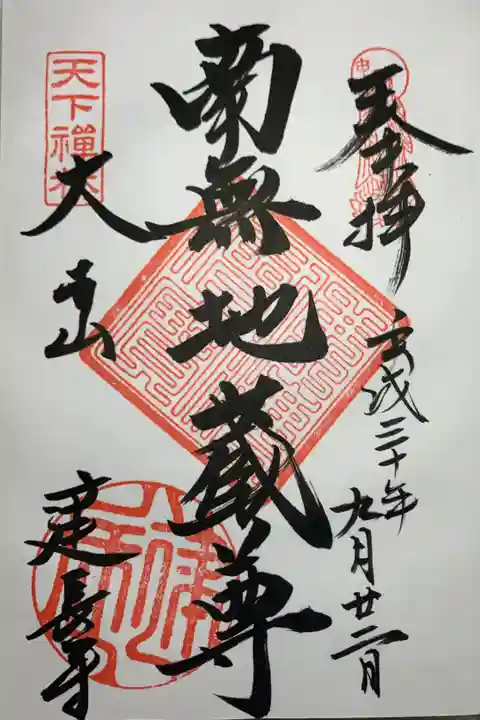 奉拝
平成三十年
九月廿二日
南無地蔵尊
天下禅林
大本山
建長寺